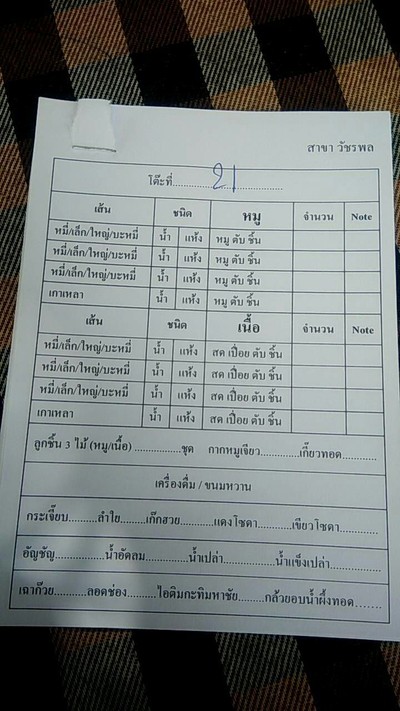 สาขา วัชรพล
โต๊ะที่............21...............
เส้น ชนิด หมู จำนวน Note
หมี่/เล็ก/ใหญ่/บะหมี่ น้ำ แห้ง หมู ตับ ชิ้น
หมี่/เล็ก/ใหญ่/บะหมี่ น้ำ แห้ง หมู ตับ ชิ้น
หมี่/เล็ก/ใหญ่/บะหมี่ น้ำ แห้ง หมู ตับ ชิ้น
เกาเหลา น้ำ แห้ง หมู ตับ ชิ้น
เส้น ชนิด เนื้อ จำนวน Note
หมี่/เล็ก/ใหญ่/บะหมี่ น้ำ แห้ง สด เปื่อย ตับ ชิ้น
หมี่/เล็ก/ใหญ่/บะหมี่ น้ำ แห้ง สด เปื่อย ตับ ชิ้น
หมี่/เล็ก/ใหญ่/บะหมี่ น้ำ แห้ง สด เปื่อย ตับ ชิ้น
เกาเหลา น้ำ แห้ง สด เปื่อย ตับ ชิ้น
ลูกชิ้น 3 ไม้ (หมู/เนื้อ) ...............ชุด กากหมูเจียว.............เกี๊ยวทอด............
เครื่องดื่ม / ขนมหวาน
กระเจี๊ยบ..........ลำไย..........เก๊กฮวย..........แดงโซดา............เขียวโซดา............
อัญชัญ..........น้ำอัดลม...............น้ำเปล่า...............น้ำแข็งเปล่า...............
เฉาก๊วย..........ลอดช่อง..........ไอติมกะทิมหาชัย.........กล้วยอบน้ำผึ้งทอด.......